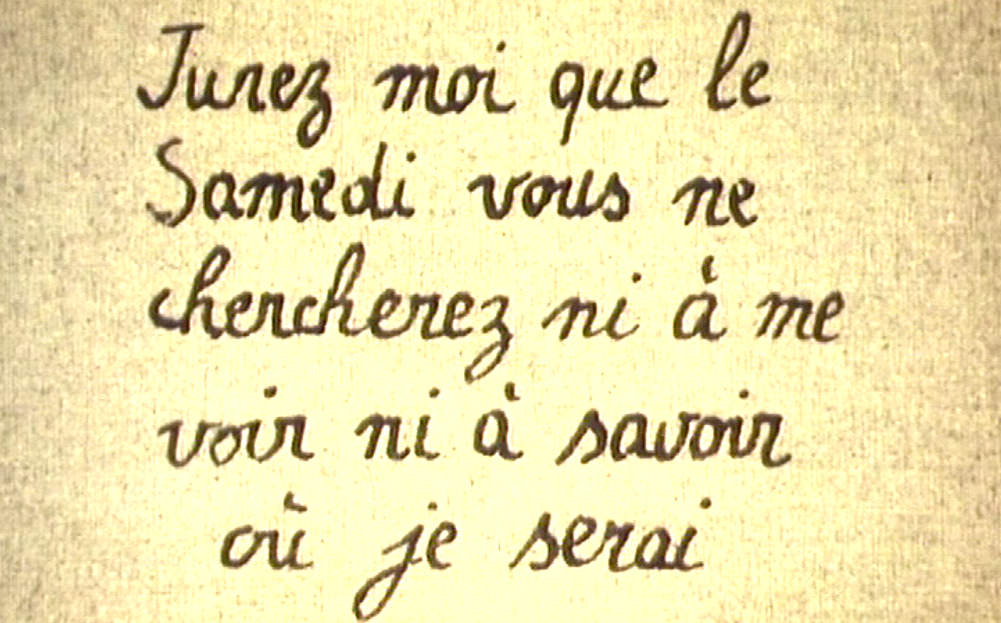 Jurez moi que le
Samedi vous ne
chercherez ni à me
voir ni à savoir
où je serai